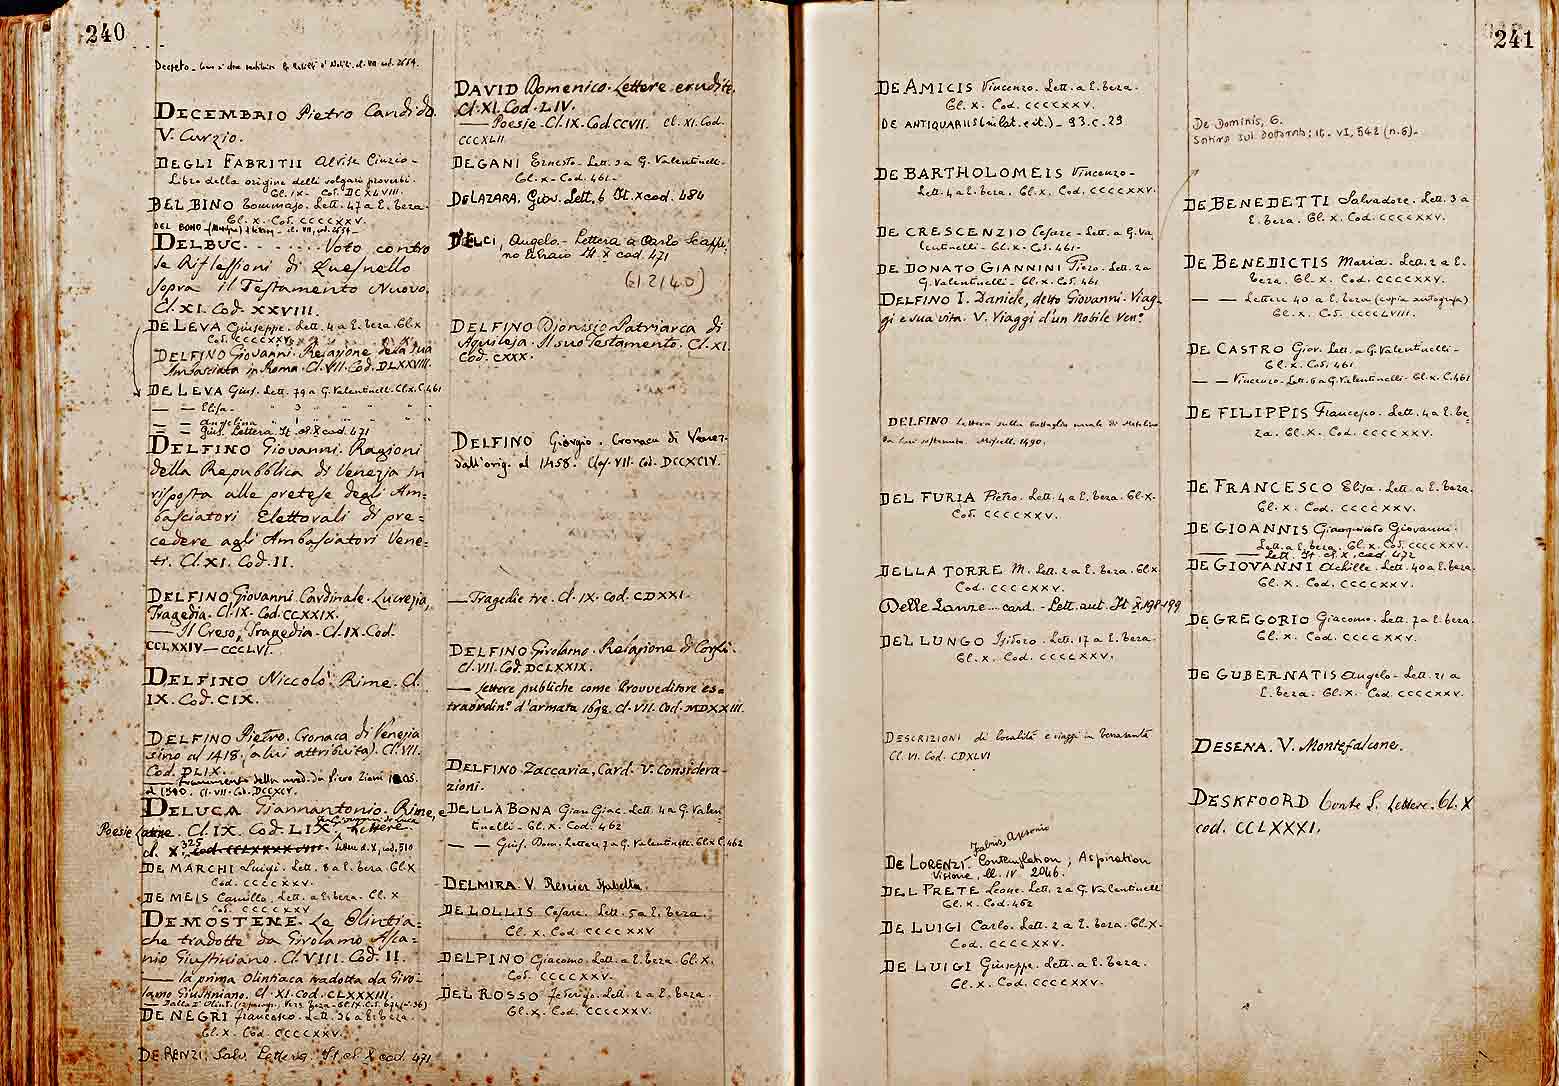 240
DECEMBRIO Pietro Candido.
V. Curzio.
DEGLI FABRITII Alvise Cinzio -
Libro della origine delli volgari proverbi.
Cl. IX - Cod. DCXLVIII.
DEL BINO Tommaso. Lett. 47 a E. Teza.
Cl. X. Cod. CCCCXXV.
DELBUC. . . . . . . . Voto contro
le Riflessioni di Quesnello
sopra il Testamento Nuovo.
Cl. XI. Cod. XXVIII.
DE LEVA Giuseppe. Lett. 4 a E. Teza. Cl. X
Cod. CCCCXXV.
DELFINO Giovanni. Relazione della sua
Ambasciata in Roma. Cl. VII. Cod. DLXXVIII.
DE LEVA Gius. Lett. 79 a G. Valentinelli. Cl. X. C. 461
— — Elisa - 3 " " "
— — Angelina 1 " " "
— — Gius. Lettera It. cl. X cod. 471
DELFINO Giovanni. Ragioni
della Repubblica di Venezia in
risposta alle pretese degli Am=
basciatori Elettorali di pre=
cedere agli Ambasciatori Vene=
ti. Cl. XI. Cod. II.
DELFINO Giovanni Cardinale. Lucrezia,
Tragedia. Cl. IX. Cod. CCXXIX.
— Il Creso, Tragedia. Cl. IX. Cod.
CCLXXIV — CCCLVI.
DELFINO Niccolò. Rime. Cl.
IX. Cod. CIX.
DELFINO Pietro. Cronaca di Venezia
sino al 1418. a lui attribuita). Cl. VII.
Cod. DLIX.
al 1390. Cl. VII. Cod. DCCXCV.
DELUCA Giannantonio. Rime, e
Poesie Latine. Cl. IX. Cod. LIX. Lettere.
cl. X. 325
DE MARCHI Luigi. Lett. 8 a E. Teza. Cl. X
Cod. CCCCXXV.
DE MEIS Camillo. Lett. a E. Teza. Cl. X
Cod. CCCCXXV
DEMOSTENE. Le Olintia=
che tradotte da Girolamo Asca=
nio Giustiniano. Cl. VIII. Cod. II.
— la prima Olintiaca tradotta da Giro=
lamo Giustiniano. Cl. XI. Cod. CLXXXIII.
DE NEGRI Francesco. Lett. 36 a E. Teza.
Cl. X. Cod. CCCCXXV.
DE RENZI, Salv. Lettera. It. cl. X cod. 471
DAVID Domenico. Lettere erudite.
Cl. XI. Cod. LIV.
— Poesie. Cl. IX. Cod. CCVII. Cl. XI. Cod.
CCCXLII
DEGANI Ernesto - Lett. 2 a G. Valentinelli.
Cl. X - Cod. 461 -
DELAZARA. Giov. Lett. 6 It. X cod. 484
DELCI, Angelo. - Lettera a Carlo Scappi=
no libraio It. X cod. 471
(6 12 140)
DELFINO Dionisio Patriarca di
Aquileja. Il suo Testamento. Cl. XI.
Cod. CXXX.
DELFINO Giorgio. Cronaca di Venez.
dall'orig. al 1458. Clas. VII. Cod. DCCXCIV.
— Tragedie tre. Cl. IX. Cod. CDXXI.
DELFINO Girolamo. Relazione di Corfù.
Cl. VII. Cod. DCLXXIX.
— Lettere publiche come Provveditore es=
traordin.º d'armata 1698. Cl. VII. Cod. MDXXIII.
DELFINO Zaccaria, Card. V. Considera=
zioni.
DELLA BONA Gian Giac. Lett. 4 a G. Valen=
tinelli - Cl. X. Cod. 462
— — Gius. Dom. Lettere 7 a G. Valentinelli. Cl. X C. 462
DELMIRA. V. Renier Isabella.
DE LOLLIS Cesare. Lett. 5 a E. Teza.
Cl. X. Cod. CCCCXXV
DELPINO Giacomo. Lett. a E. Teza. Cl. X.
Cod. CCCCXXV.
DEL ROSSO Federigo. Lett. 2 a E. Teza.
Cl. X. Cod. CCCCXXV.
241
DE AMICIS Vincenzo. Lett. a E. Teza.
Cl. X. Cod. CCCCXXV.
DE ANTIQUARIIS (in lat. cit.) - 93. c. 29
DE BARTHOLOMEIS Vincenzo -
Lett. 4 a E. Teza. Cl. X. Cod. CCCCXXV.
DE CRESCENZIO Cesare - Lett. a G. Va=
lentinelli - Cl. X - Cod. 461 -
DE DONATO GIANNINI Piero. Lett. 2 a
G. Valentinelli - Cl. X. Cod. 461
DELFINO I. Daniele, detto Giovanni. Viag=
gi e sua vita. V. Viaggi d'un Nobile Venº.
DELFINO Lettera sulla battaglia navale di Metelino
da lui sostenuta. Miscell. 1490.
DEL FURIA Pietro. Lett. 4 a E. Teza. Cl. X.
Cod. CCCCXXV.
DELLA TORRE M. Lett. 2 a E. Teza. Cl. X
Cod. CCCCXXV.
Delle Lanze... card. - Lett. aut. It X, 198-199
DEL LUNGO Isidoro. Lett. 17 a E. Teza.
Cl. X. Cod. CCCCXXV.
DESCRIZIONI di località e viaggi in
Cl. VI. Cod. CDXLVI
DE LORENZI Contemplation; Aspiration
Visione, It. IV 2046.
DEL PRETE Leone. Lett. 2 a G. Valentinelli
Cl. X. Cod. 462
DE LUIGI Carlo. Lett. 2 a E. Teza. Cl. X.
Cod. CCCCXXV.
DE LUIGI Giuseppe. Lett. a E. Teza.
Cl. X. Cod. CCCCXXV.
De Dominis, G.
Satira sul dottorato: It. VI, 542 (n. 6).
DE BENEDETTI Salvadore. Lett. 3 a
E. Teza. Cl. X. Cod. CCCCXXV.
DE BENEDICTIS Maria. Lett. 2 a E.
Teza. Cl. X. Cod. CCCCXXV.
— — Lettere 40 a E. Teza (copia autografa)
Cl. X. Cod. CCCCLVIII.
DE CASTRO Giov. Lett. a G. Valentinelli -
Cl. X. Cod. 461
— — Vincenzo - Lett. 6 a G. Valentinelli - Cl. X. C. 461
DE FILIPPIS Francesco. Lett. 4 a E. Te=
za. Cl. X. Cod. CCCCXXV.
DE FRANCESCO Elisa. Lett. a E. Teza.
Cl. X. Cod. CCCCXXV.
DE GIOANNIS Gianquinto Giovanni.
Lett. a E. Teza. Cl. X. Cod. CCCCXXV.
— — Lett. It. cl. X, cod. 472
DE GIOVANNI Achille. Lett. 40 a E. Teza.
Cl. X. Cod. CCCCXXV.
DE GREGORIO Giacomo. Lett. 7 a E. Teza.
Cl. X. Cod. CCCCXXV.
DE GUBERNATIS Angelo - Lett. 21 a
E. Teza. Cl. X. Cod. CCCCXXV.
DESENA. V. Montefalcone.
DESKFOORD Conte S. Lettere. Cl. X
cod. CCLXXXI.